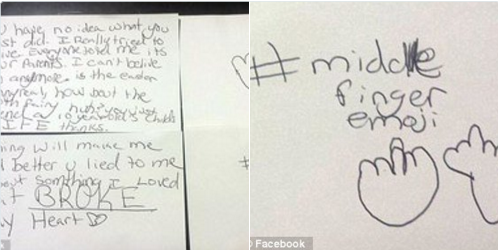 have no idea what you
st did. I Really tried to
Everyone told me its
ur Parents. I can't belive
anymore. is the easter
real, how bout the
th fairy huh? you just
a 10 year old's childs
IFE thanks.
ning will make me
better u lied to me
out something I loved
t BROKE
y Heart
#middle
finger
emoji
© Facebook